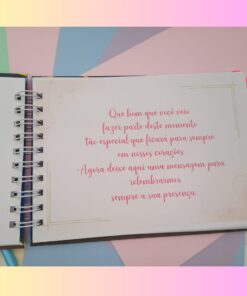 Que bom que você veio
fazer parte deste momento
tão especial que ficará para sempre
em nossos corações.
Agora deixe aqui uma mensagem para
relembrarmos
sempre a sua presença.